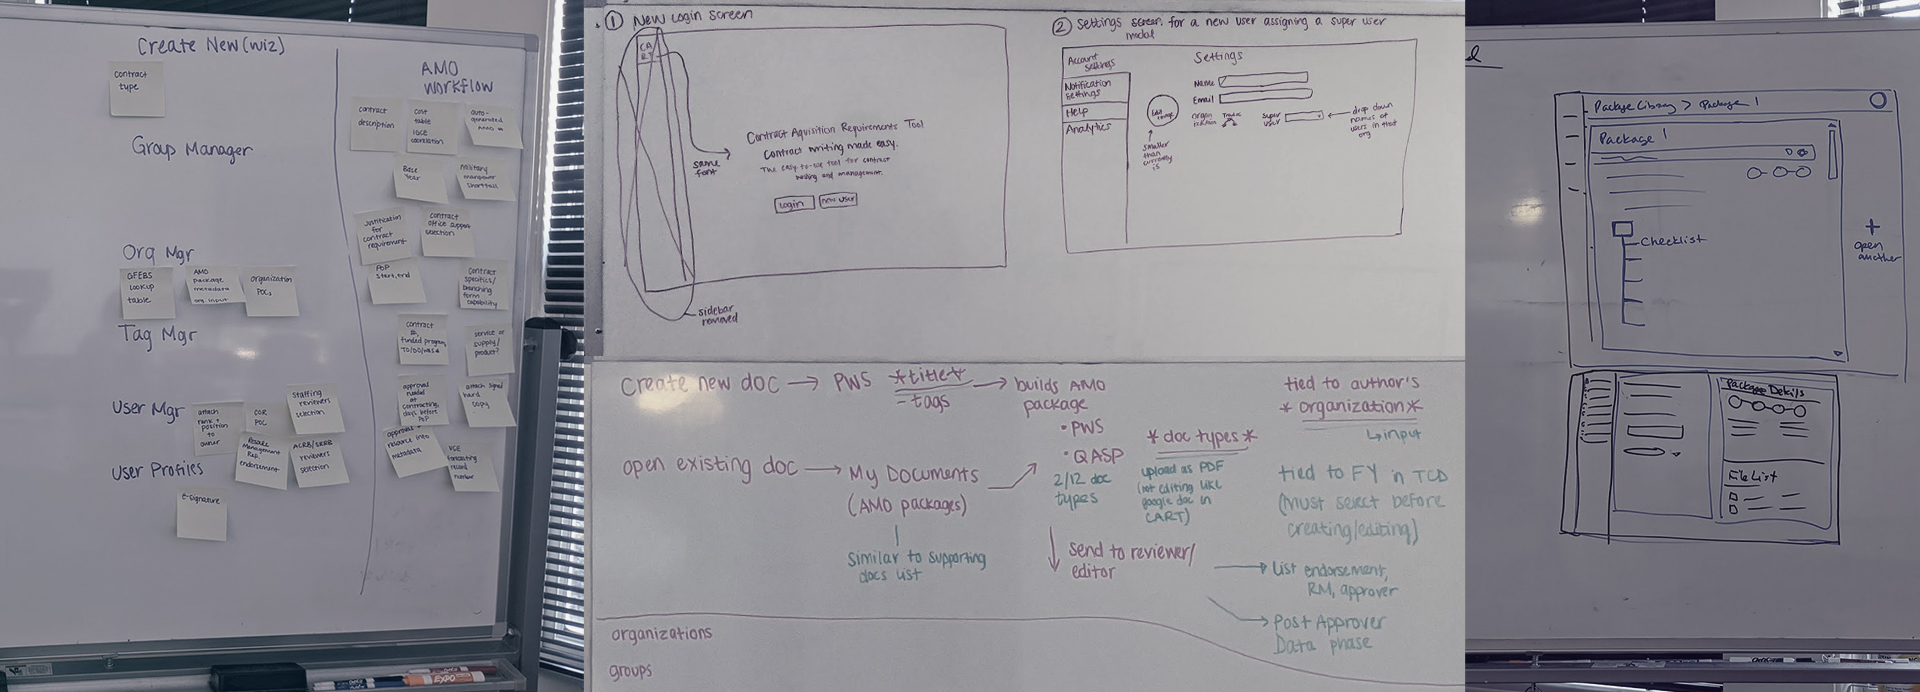 Create New (wiz)
contract
type
Group Manager
Org Mgr
GFEBS
lookup
table
AMO
package
metadata
org. input
organization
POCs
Tag Mgr
User Mgr
attach
rank
position to
owner
COR
POC
Staffing
reviewers
selection
Resource
Management
Rep.
endorsement
reviewers
selection
User Profiles
e-signature
AMO
Workflow
contract
description
cost
table
IGCE
correlation
auto-
generated
Base
Year
military
manpower
shortfall
justification
for
contract
requirement
contract
office support
selection
PoP
start, end
contract
specifics/
branching
form
capability
contract
#,
funded program
service or
supply/
product?
approval
needed
at
contracting,
days before
PoP
attach signed
hard
copy
approval
resource info
metadata
forecasting
record
number
① New Login screen
CA
RT
same
font
Contract Aquisition Requirements Tool
Contract writing made easy.
The easy-to-use tool for contract
writing and management.
login
new user
sidebar
removed
② Settings screen for a new user assigning a super user
modal
Account
Settings
Notification
Settings
Help
Analytics
Settings
Name
Email
Edit
image
smaller
than
currently
is
Super
User
drop down
names of
users in that
org
create new doc → PWS *title*
- tags
→ builds AMO
package
• PWS
• QASP
2/12 doc
types
open existing doc → My Documents
(AMO packages)
similar to supporting
docs list
* doc types *
upload as PDF
(not editing like
google doc in
CART)
send to reviewer/
editor
tied to author's
* organization *
↳ input
tied to FY in TCD
(must select before
creating/editing)
→ List endorsement,
RM, approver
→ Post Approver
Data phase
organizations
groups
d
Package Library > Package 1
Package 1
Checklist
+
open
another
Package Details
File List
EXPO